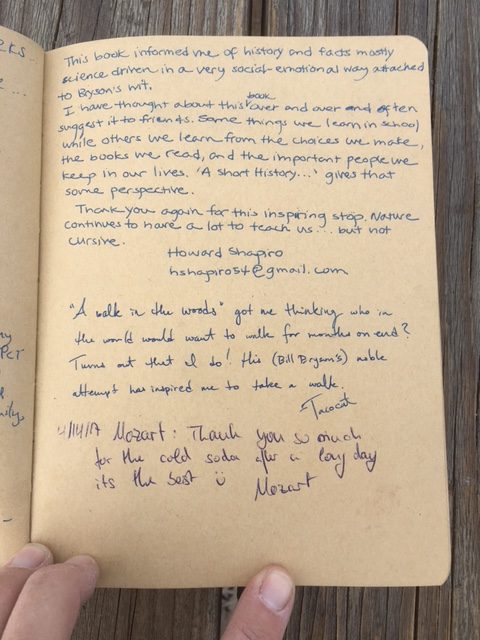 RKS..
e ...
This book informed me of history and facts mostly
science driven in a very social-emotional way attached
to Bryson's wit.
I have thought about this book over and over and often
suggest it to friends. Some things we learn in school
while others we learn from the choices we make,
the books we read, and the important people we
keep in our lives. 'A Short History...' gives that
some perspective.
Thank you again for this inspiring stop. Nature
continues to have a lot to teach us... but not
cursive.
Howard Shapiro
hshapiro54@gmail.com
"A walk in the woods" got me thinking who in
the world would want to walk for months on end?
Turns out that I do! His (Bill Bryson's) noble
attempt has inspired me to take a walk.
-Tacocat
4/14/17 Mozart: Thank you so much
for the cold soda after a long day
its the best
Mozart
PCT